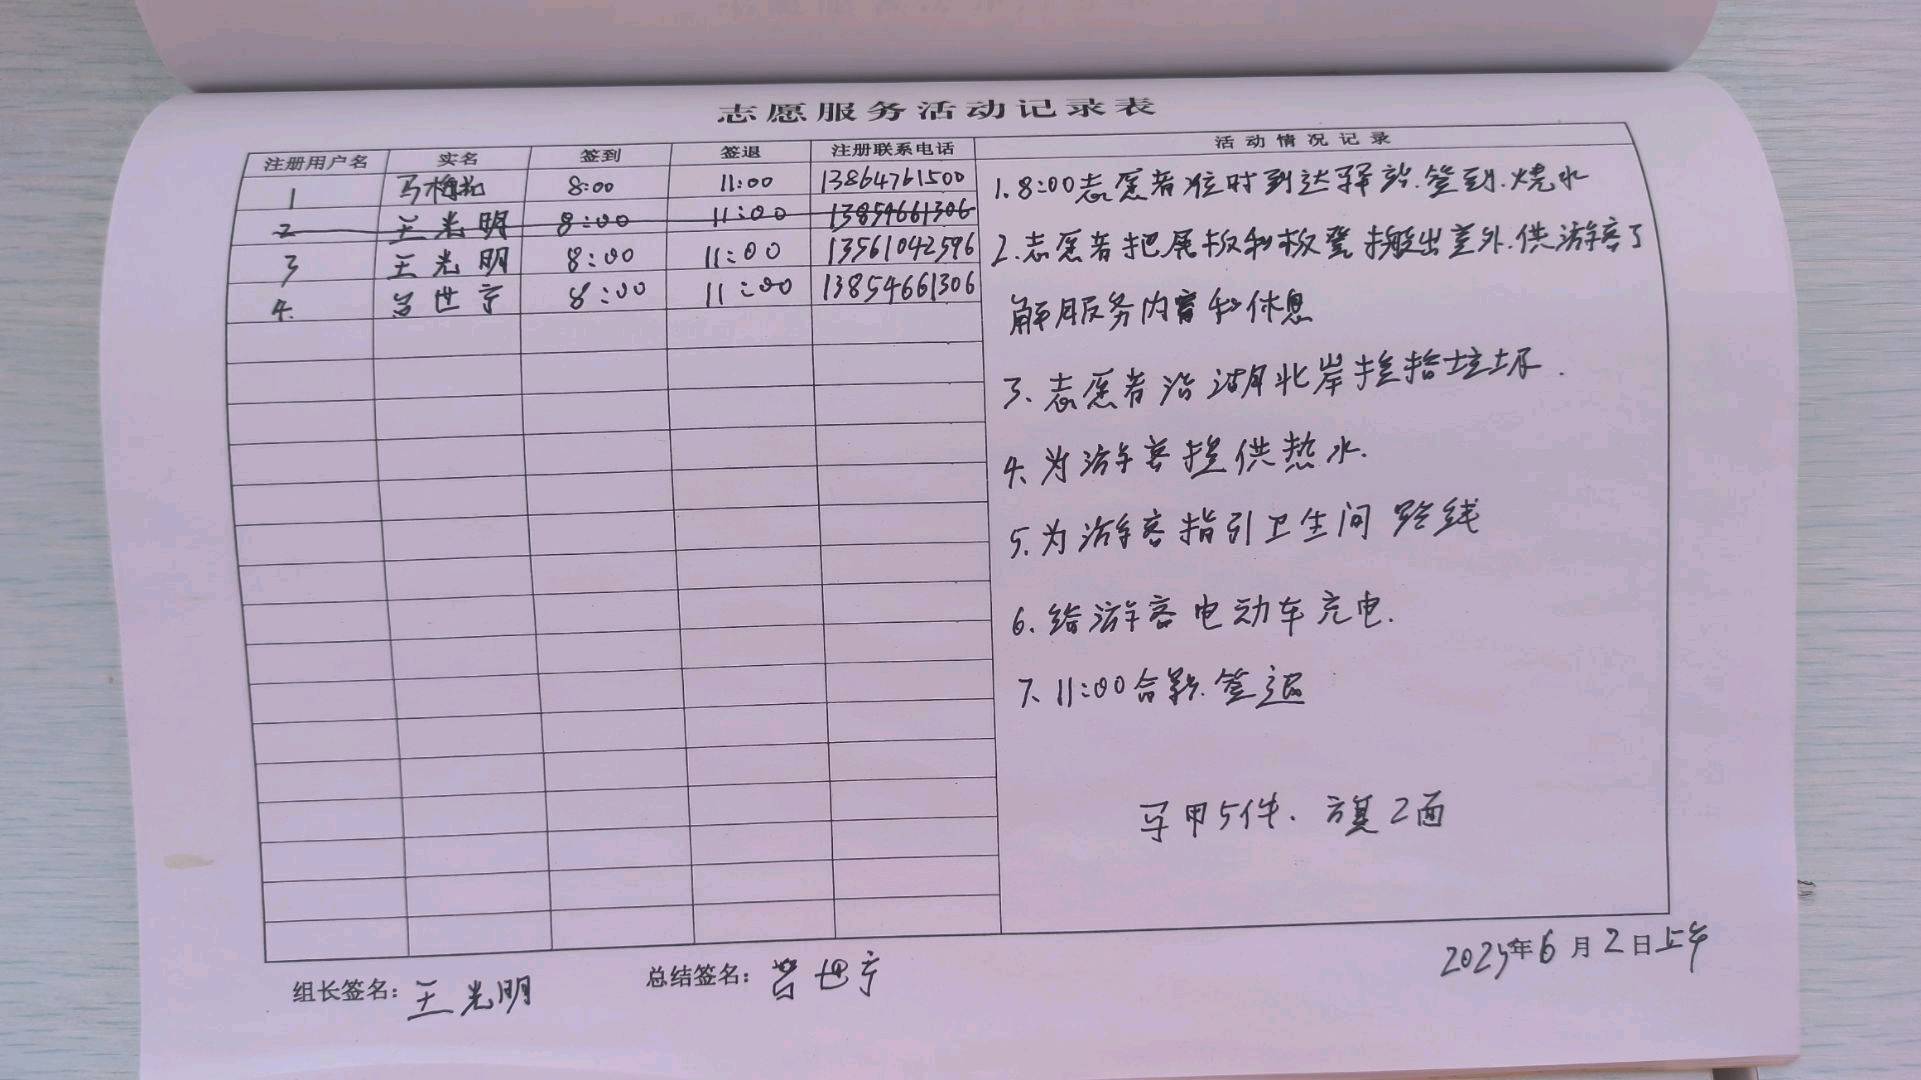 志愿服务活动记录表
注册用户名 实名 签到 签退 注册联系电话 活动情况记录
1 马梅花 8:00 11:00 13864761500
2 王光明 8:00 11:00 13854661306
3 王光明 8:00 11:00 13561042596
4. 吕世宁 8:00 11:00 13854661306
1.8:00志愿者按时到达驿站.签到.烧水
2.志愿者把展板和板凳搬出室外.供游客了
解服务内容和休息
3、志愿者沿湖北岸捡拾垃圾.
4、为游客提供热水.
5.为游客指引卫生间路线
6.给游客电动车充电.
7、11:00合影.签退
马甲5件.旗2面
组长签名: 王光明 总结签名: 吕世宁 2025年6月2日上午